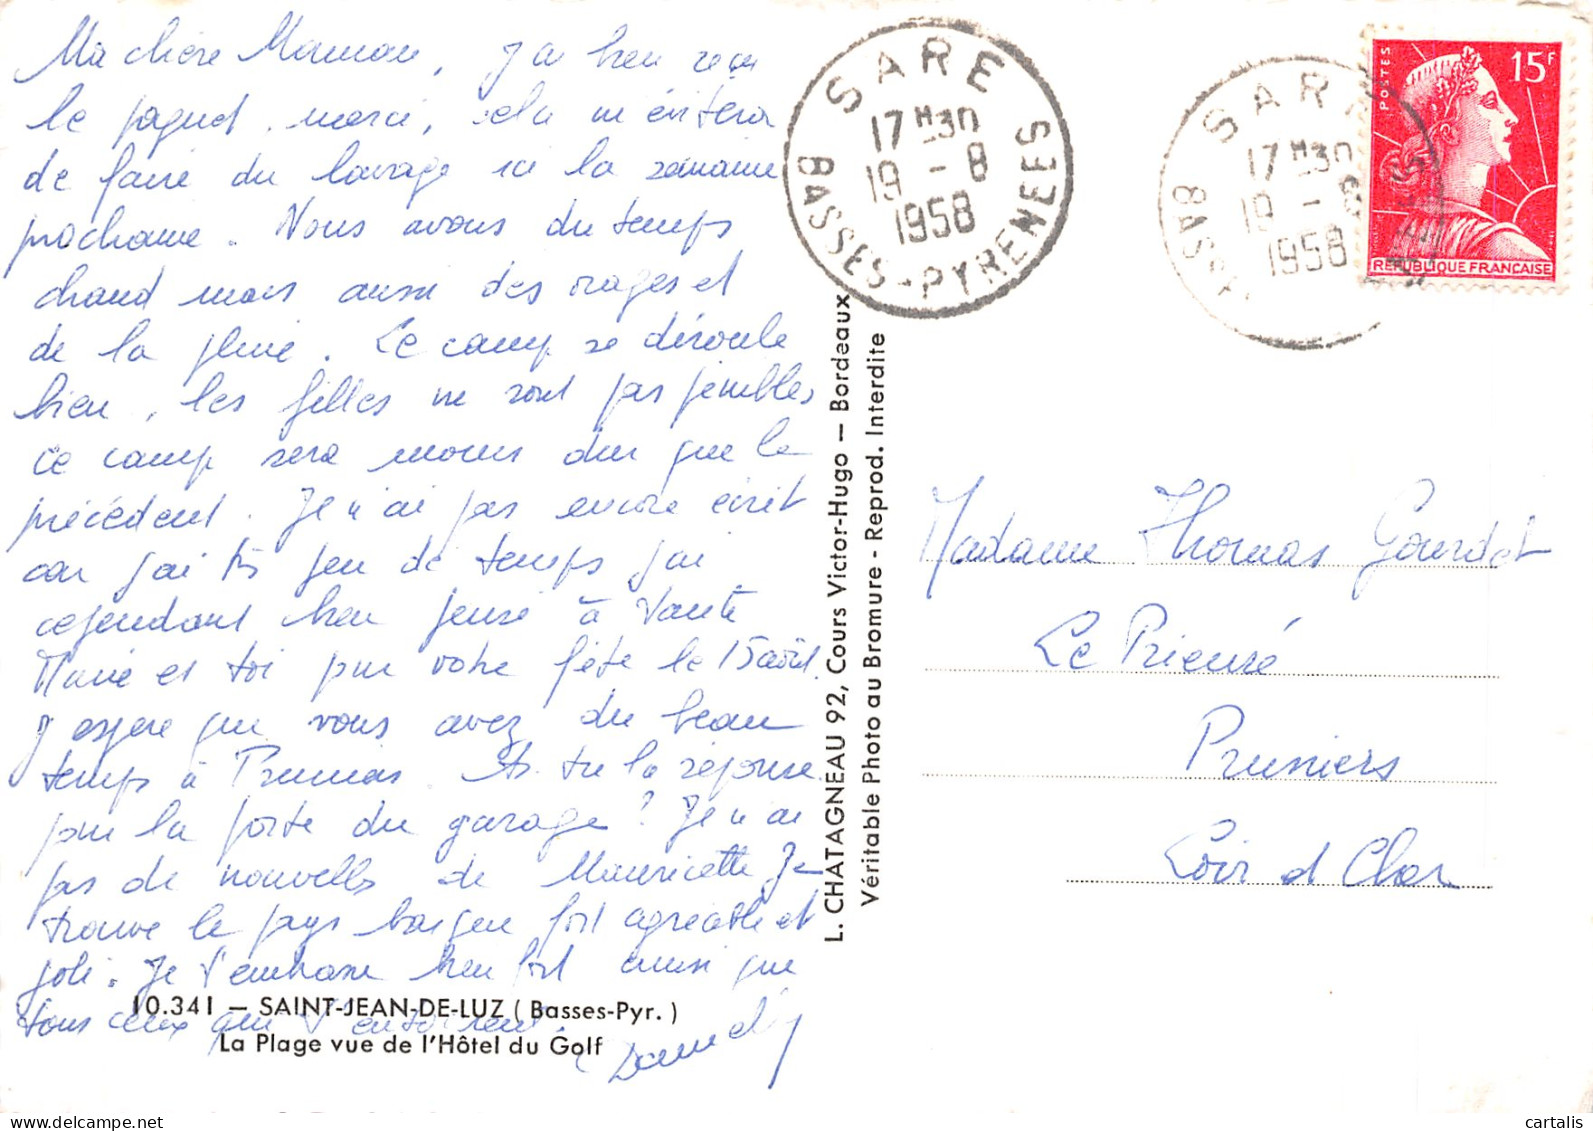 Ma chère Maman, J'ai bien reçu
le paquet, merci, cela m'évitera
de faire du lavage ici la semaine
prochaine. Nous avons du temps
chaud mais aussi des orages et
de la pluie. Le camp se déroule
bien, les filles ne sont pas pénibles,
ce camp sera moins dur que le
précédent. Je n'ai pas encore écrit
car j'ai très peu de temps j'ai
cependant bien pensé à Tante
Marie et toi pour votre fête le 15 août.
J'espère que vous avez du beau
temps à Pruniers. As-tu la réponse
pour la porte du garage? Je n'ai
pas de nouvelles de Mauricette. Je
trouve le pays basque fort agréable et
joli. Je t'embrasse bien fort ainsi que
tous ceux qui t'entourent.
10.341 — SAINT-JEAN-DE-LUZ ( Basses-Pyr. )
La Plage vue de l'Hôtel du Golf
L. CHATAGNEAU 92, Cours Victor-Hugo — Bordeaux
Véritable Photo au Bromure - Reprod. Interdite
SARE
17 H 30
19 - 8
1958
BASSES-PYRENEES
SAR
17 H 30
19 - 8
1958
BASS
POSTES
15F
REPUBLIQUE FRANCAISE
Madame Thomas Gourdet
Le Prieuré
Pruniers
Loir et Cher
cartalis
delcampe.net